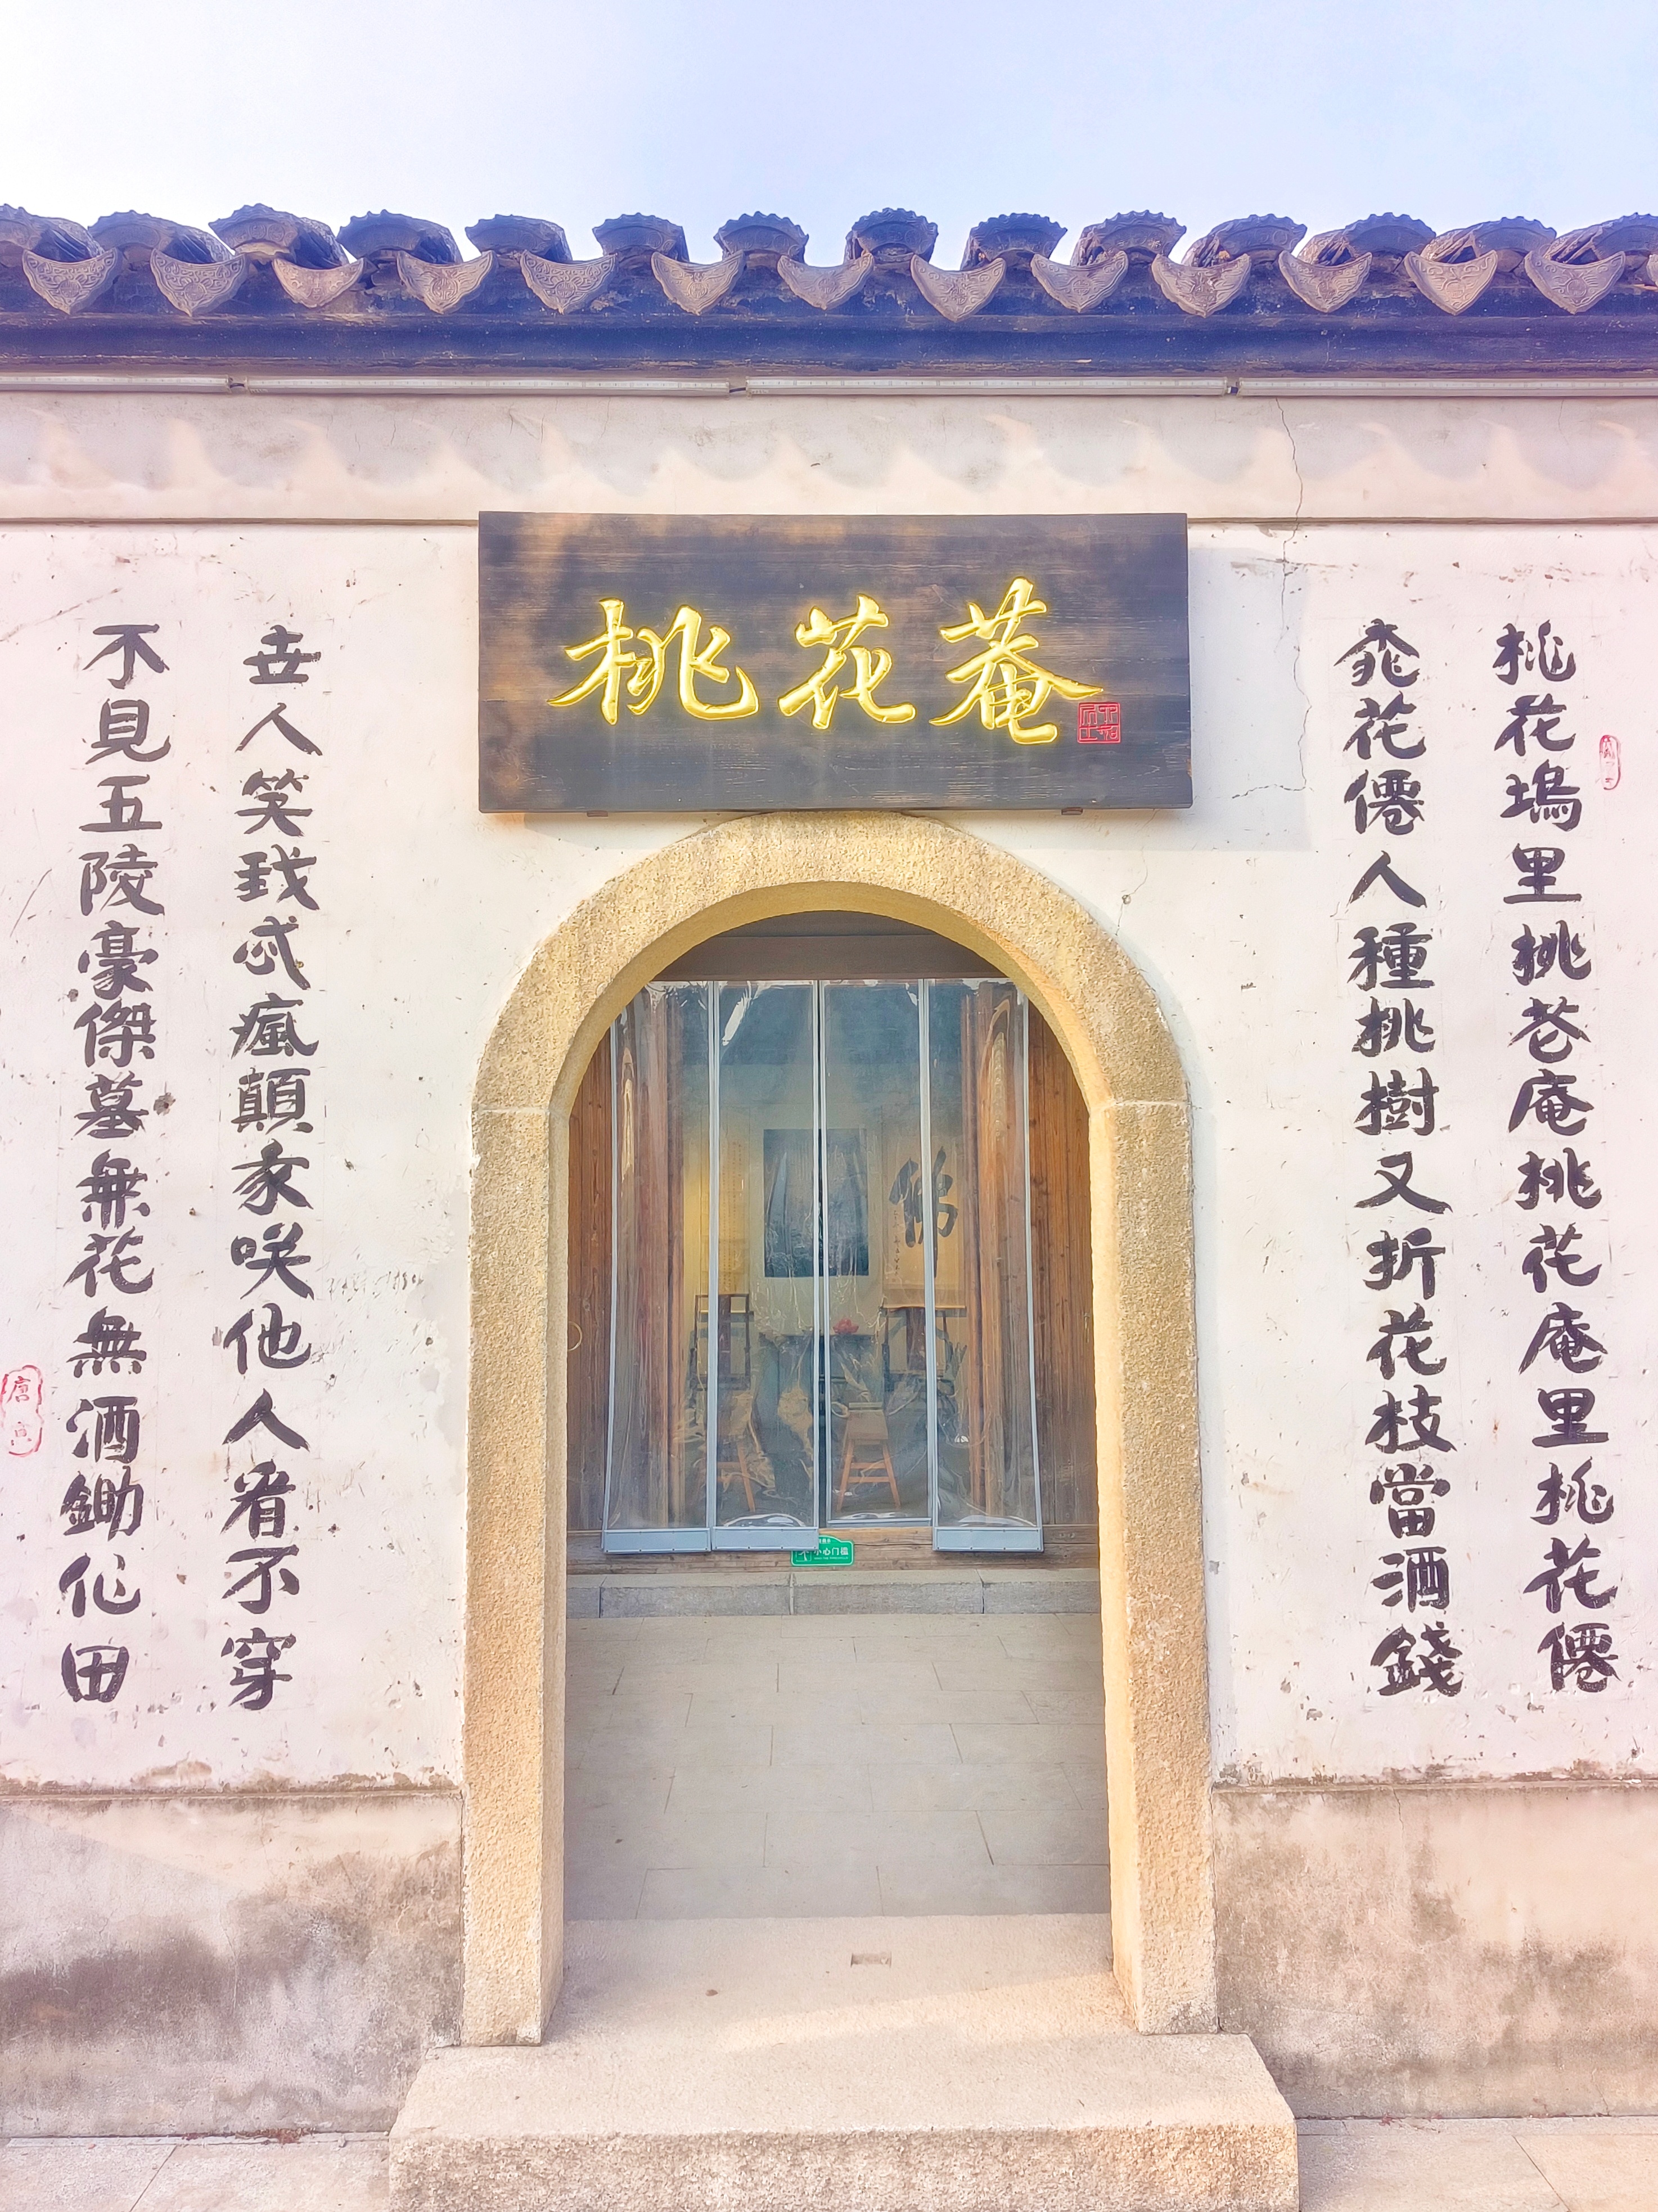 桃花菴
桃花塢里桃花庵桃花庵里桃花僊
桃花僊人種桃樹又折花枝當酒錢
世人笑我忒瘋顛我咲他人看不穿
不見五陵豪傑墓無花無酒鋤作田
唐寅
佛
小心门槛